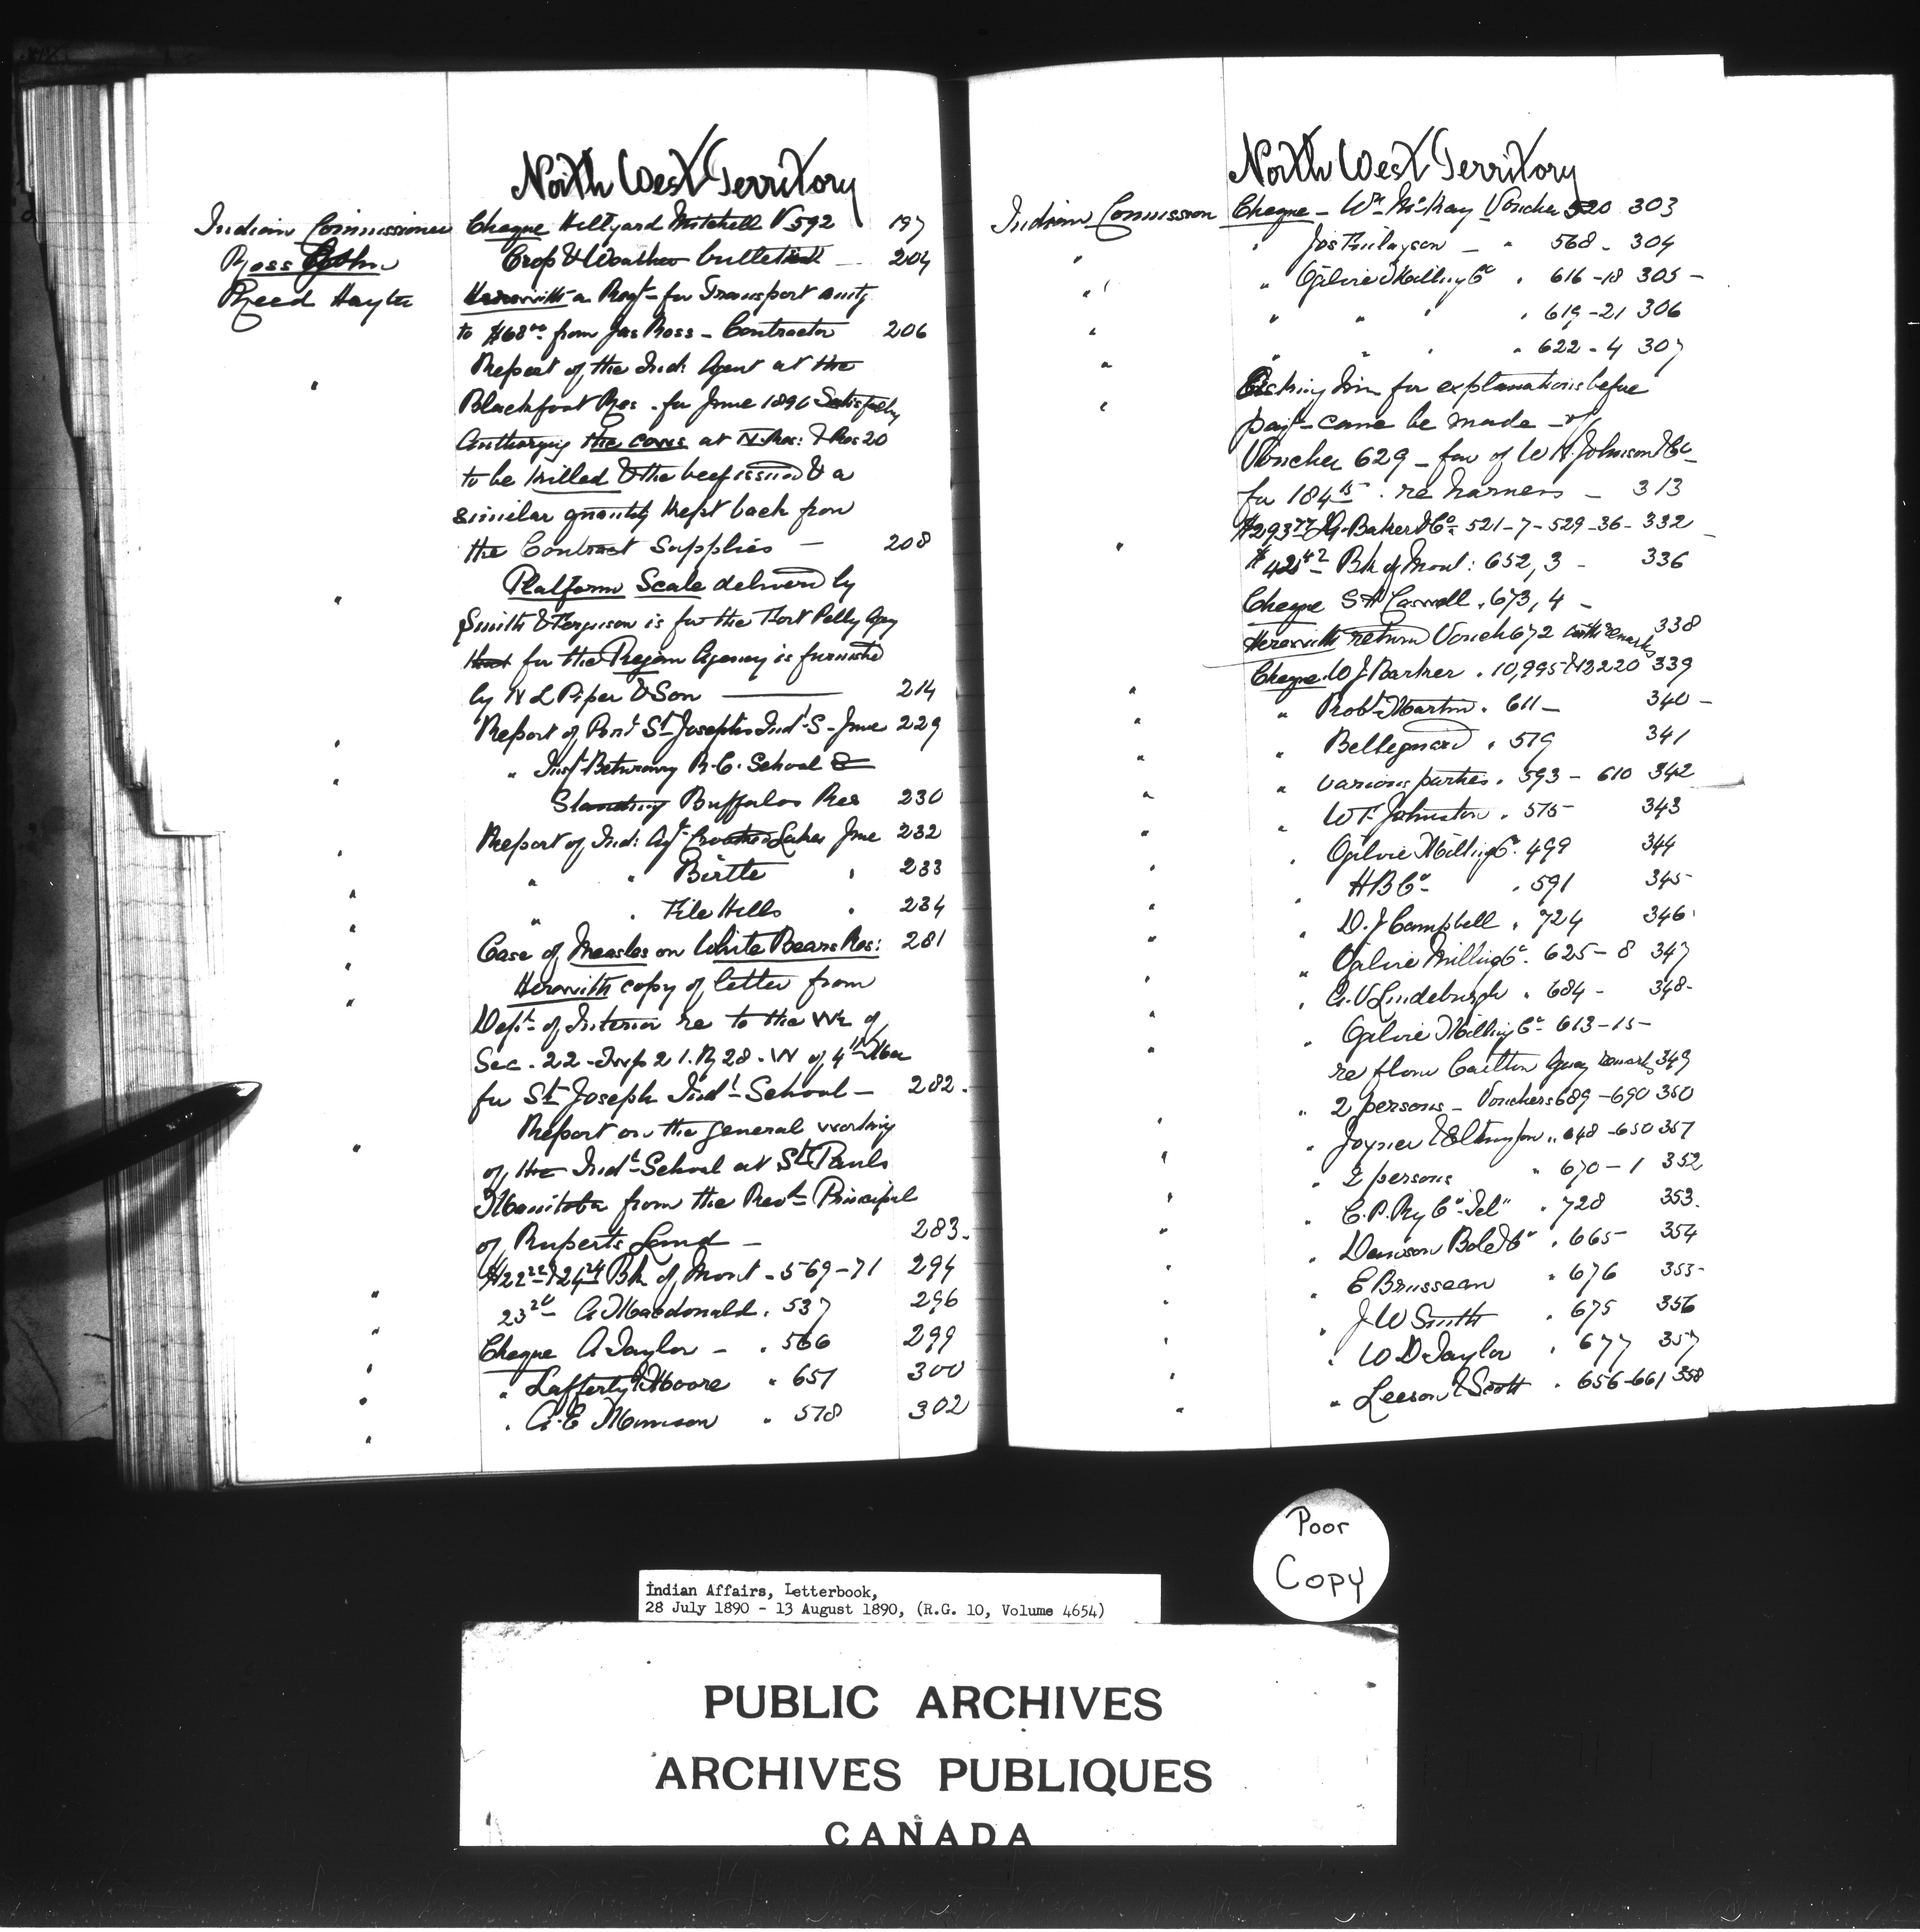 North West Territory
Indian Commissioner Cheque Hillyard Mitchell V 592 197
Ross Crop & Weather bulletin 204
Reed Hayter Herewith a Reqt for Transport amtg
to $68.00 from Jas Ross - Contractor 206
" Report of the Ind: Agent at the
Blackfoot Res. for June 1890
the cows at N. Res: & Res 20
to be killed & the beef issued & a
similar quantity kept back from
the Contract Supplies — 208
" Platform Scale delivered by
Smith & Ferguson is for the Fort Pelly Agcy
that for the Regina Agency is furnished
by N L Piper & Son — 214
" Report of St Joseph's Indl S - June 229
" " R.C. School
Standing Buffalos Res 230
" Report of Ind: Agt Crooked Lakes June 232
" " " Birtle " 233
" " " File Hills " 234
" Case of Measles on White Bears Res: 281
" Herewith copy of letter from
Dept of Interior re to the W½ of
Sec. 22 - Twp 21. R 28. W of 4th Mer
for St Joseph Indl School — 282.
" Report on the general working
of the Indl School at St Pauls
Manitoba from the Revd Principal
of Ruperts Land — 283.
" Bk of Mont - 569-71 294
" A Macdonald. 537 296
" Cheque A Taylor - . 566 299
" " Lafferty & Moore " 651 300
" " A. E " 578 302
North West Territory
Indian Commission Cheque - Wm McKay Voucher 520 303
" " Jos Finlayson — " 568 - 304
" " Ogilvie Milling Co " 616-18 305 -
" " " " " 619-21 306
" " " " " 622-4 307
" Asking him for explanations before
payt can be made - of
Voucher 629 - fav of W H. Johnson & Co
for 184.15 . re harness — 313
" J.G. Baker & Co 521-7-529-36- 332
$42.42 Bk of Mont: 652, 3 - 336
Cheque S H Caswell . 673, 4 -
Herewith return Vouch 672 with remarks 338
" Cheque W J Barker . 10,995 & 12220 339
" " Robt Martin . 611 - 340 -
" " Bellegarde . 519 341
" " various parties . 593 - 610 342
" " W F. Johnston . 575 343
" " Ogilvie Milling Co . 499 344
" " H B Co . 591 345
" " D. J Campbell . 724 346
" " Ogilvie Milling Co . 625-8 347
" " Lindeburgh . 684 - 348 -
" " Ogilvie Milling Co 613-15 -
re flour Carlton Agcy remarks 349
" " 2 persons - Vouchers 689-690 350
" " Joyner & Elkington " 648-650 351
" " 2 persons " 670-1 352
" " C. P. Ry Co Tel " 728 353.
" " Bole & Co . 665 - 354
" " E Brusseau " 676 355 -
" " J W Smith . 675 356
" " W D Taylor . 677 357
" " Leeson & Scott . 656-661 358
Poor
Copy
Indian Affairs, Letterbook,
28 July 1890 - 13 August 1890, (R.G. 10, Volume 4654)
PUBLIC ARCHIVES
ARCHIVES PUBLIQUES
CANADA